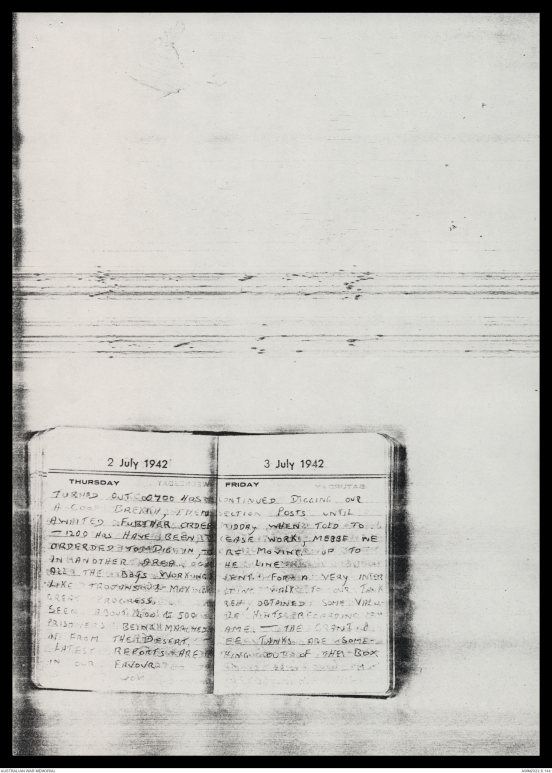 2 July 1942
THURSDAY
TURNED OUT 0700 HRS
A GOOD BREKKY, THEN
AWAITED FURTHER ORDER
— 1200 HRS HAVE BEEN
ORDERDED TO DIG IN,
IN ANOTHER AREA.
ALL THE BOYS WORKING
LIKE TROJANS & MAKING
GREAT PROGRESS.
SEEN ABOUT 400 TO 500
PRISONERS BEING MARCHED
IN FROM THE DESERT.
LATEST REPORTS ARE
IN OUR FAVOUR
3 July 1942
FRIDAY
ONTINUED DIGGING OUR
ECTION POSTS UNTIL
IDDAY WHEN TOLD TO
EASE WORK, MESSE WE
RE MOVING UP TO
HE LINE
WENT FOR A VERY INTER
STING WALK TO OUR TANK
REA OBTAINED SOME VALU
LE HINTS REGARDING
AME. — THE
EE TANKS ARE SOME-
HING OUT OF THE BOX
AUSTRALIAN WAR MEMORIAL